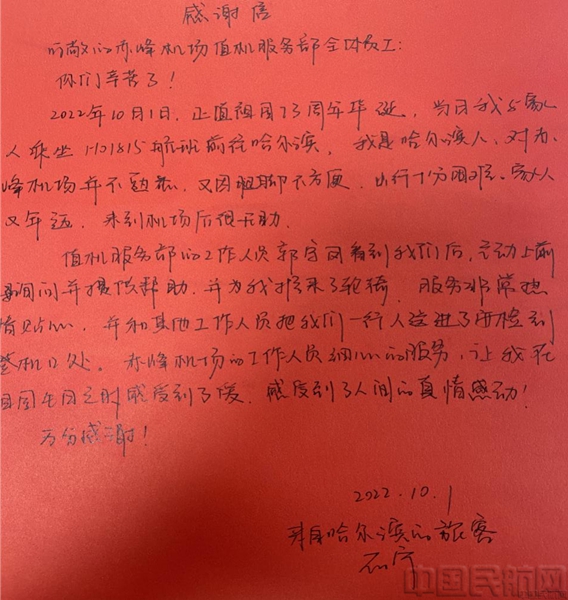 感谢信
可敬的赤峰机场值机服务部全体员工:
你们辛苦了!
2022年10月1日,正值祖国73周年华诞,当日我与家
人乘坐HO1815航班前往哈尔滨,我是哈尔滨人,对赤
峰机场并不熟悉,又因腿脚不方便,出行十分困难。家人
又年迈,来到机场后很无助。
值机服务部的工作人员郭宇看到我们后,主动上前
询问并提供帮助,并为我推来了轮椅,服务非常热
情贴心,并和其他工作人员把我们一行人送进了安检到
登机口处。赤峰机场的工作人员细心的服务,让我在
国庆之时感受到了暖,感受到了人间的真情感动!
万分感谢!
2022.10.1
来自哈尔滨的旅客
石宁
中国民航网